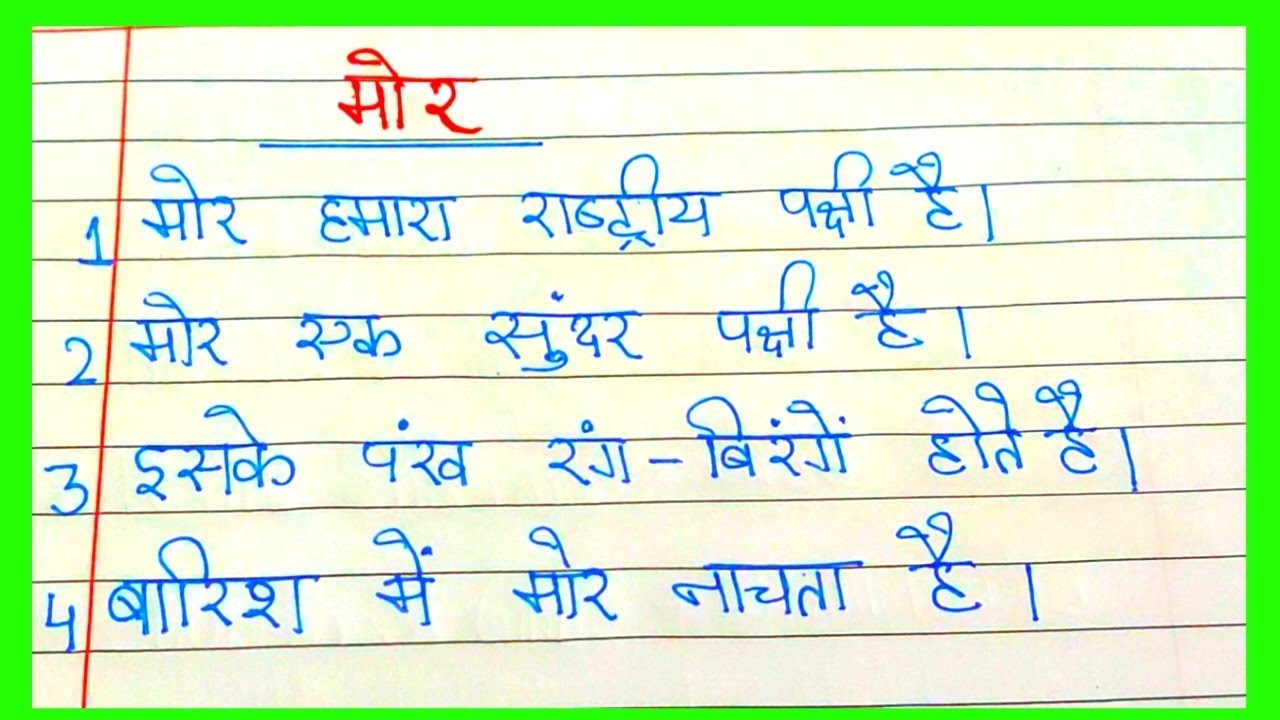 मोर
1 मोर हमारा राष्ट्रीय पक्षी है।
2 मोर एक सुंदर पक्षी है।
3 इसके पंख रंग-बिरंगें होते है।
4 बारिश में मोर नाचता है।